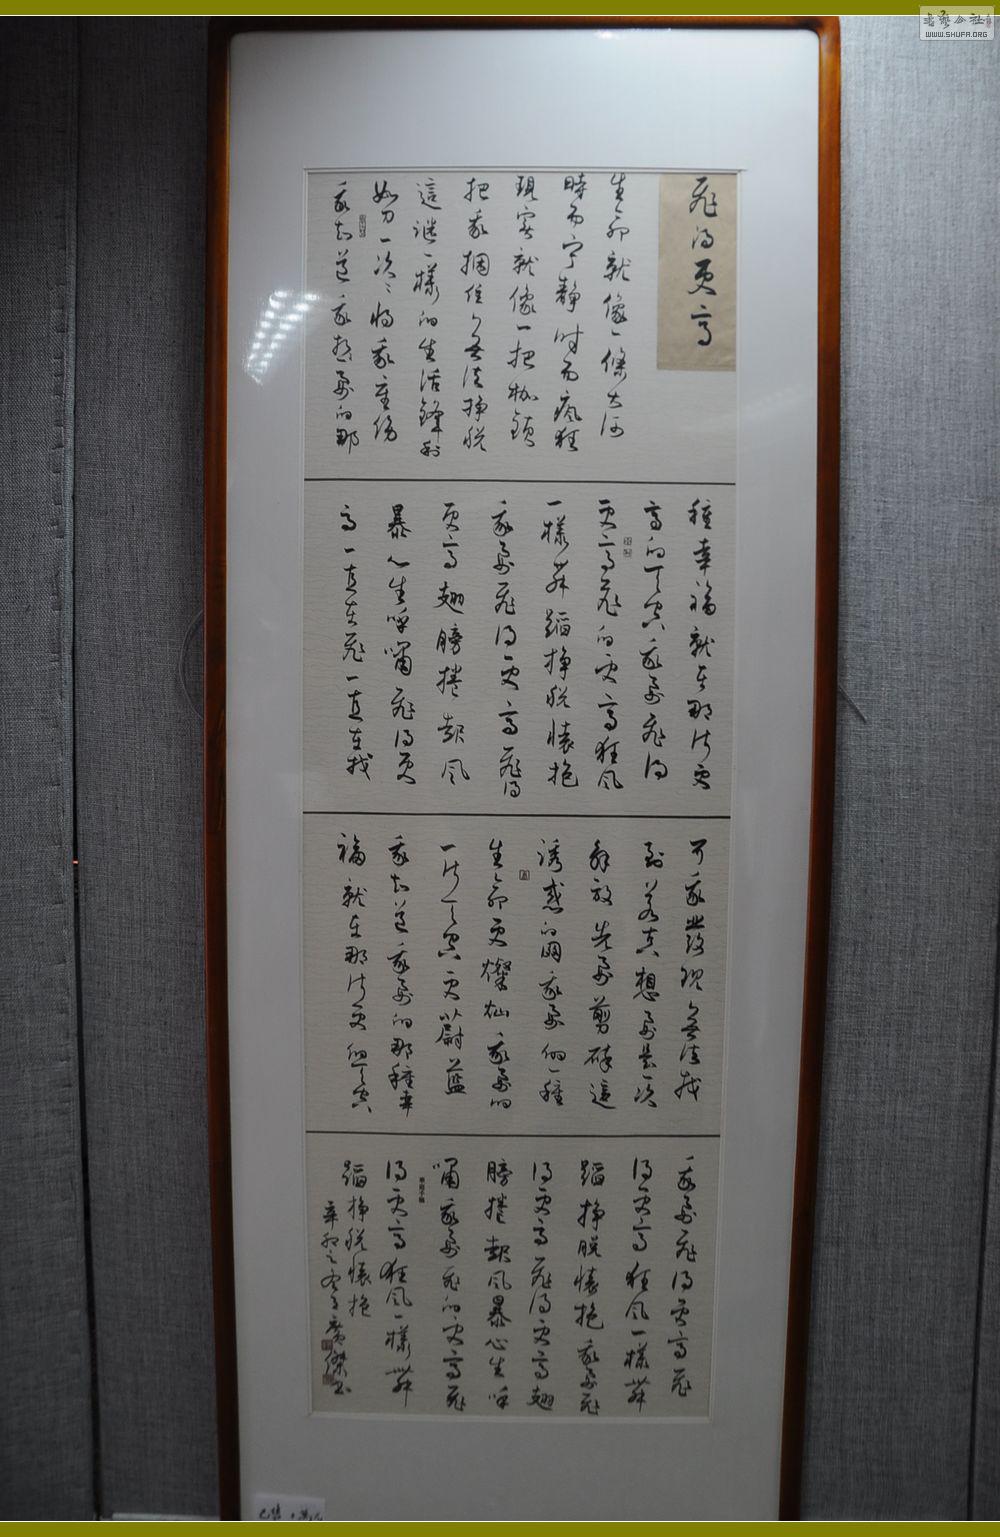 飛得更高
生命就像一條大河
時而寧靜時而瘋狂
現實就像一把枷鎖
把我捆住無法掙脫
這謎一樣的生活鋒利
如刀一次次將我重傷
我知道我要的那
種幸福就在那片更
高的天空我要飛得
更高飛得更高狂風
一樣舞蹈掙脫懷抱
我要飛得更高飛得
更高翅膀捲起風
暴心生呼嘯飛得更
高一直在飛一直在找
可我發現無法找
到若真想要是一次
解放先要剪碎這
誘惑的網我要的一種
生命更燦爛我要的
一片天空更蔚藍
我知道我要的那種幸
福就在那片更高的天空
我要飛得更高飛
得更高狂風一樣舞
蹈掙脫懷抱我要飛
得更高飛得更高翅
膀捲起風暴心生呼
嘯我要飛的更高飛
得更高狂風一樣舞
蹈掙脫懷抱
書藝公社
WWW.SHUFA.ORG